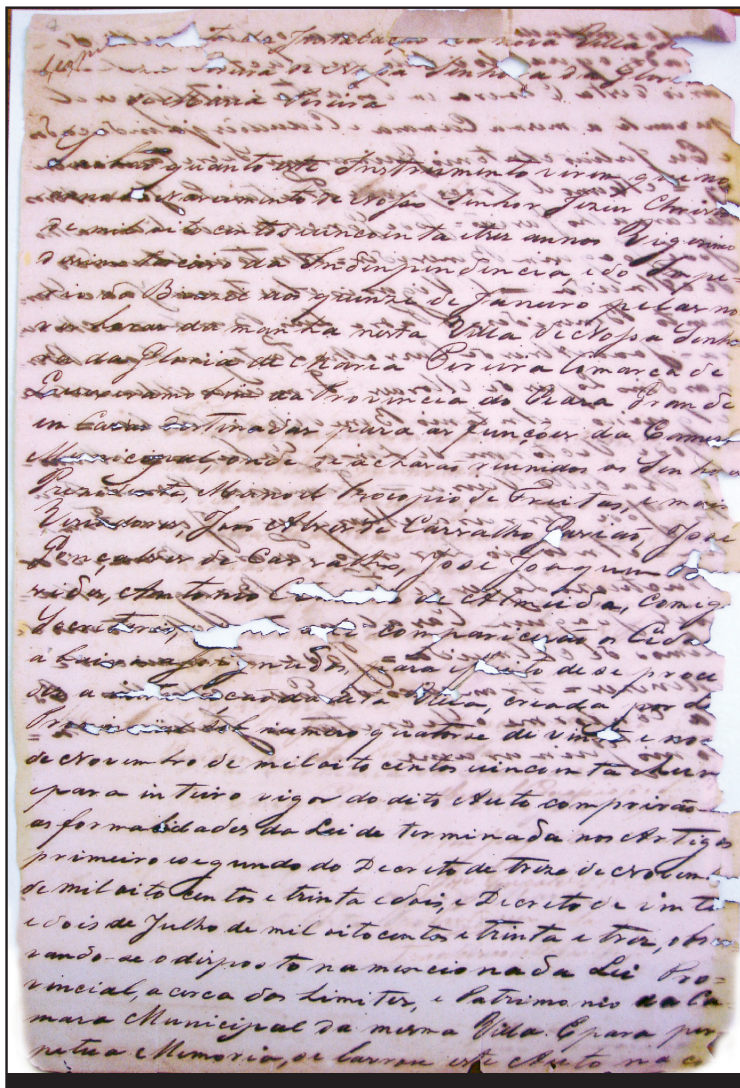 da Installação da nova Villa de
Nossa Senhora da Gloria
de Maria Pereira
Saibão quanto este Instrumento virem, que no
anno do Nascimento de Nosso Senhor Jezus Christo
de mil oito centos cincoenta e tres annos Vigessimo
da Independencia e do Impe-
rio do Brazil aos quinze de Janeiro pelas no
ve horas da manhã nesta Villa de Nossa Senho
ra da Gloria de Maria Pereira Comarca de
Quixeramobim da Provincia do Ceará Grande
em Casas destinadas para as funções da Camera
Municipal, onde se acharão reunidos os Senhores
Prezidente, Manoel Procopio de Freitas, e mais
Veriadores, José Alves de Carvalho, José
Gonçalves de Carvalho, José Joaquim
Antonio de Almeida, Comigo
Secretario, comparecerão o Cida
abaixo assignados, para effeito de se proce
der a desta Villa, creada por
Provincial numero quatorse de vinte e
de Novembro de mil oito centos cincoenta
para inteiro vigor do dito Auto comprirão
as formalidades da Lei determinada nos Artigos
primeiro e segundo do Decreto de treze de Novem
de mil oito centos e trinta e dois, e Decreto de vinte
e dois de Julho de mil oitocentos e trinta e tres, obser
vando-se o disposto na mencionada Lei Pro-
vincial, acerca dos Limites, e Patrimonio da Ca
mara Municipal da mesma Villa. E para per
petua Memoria, se lavrou este Auto